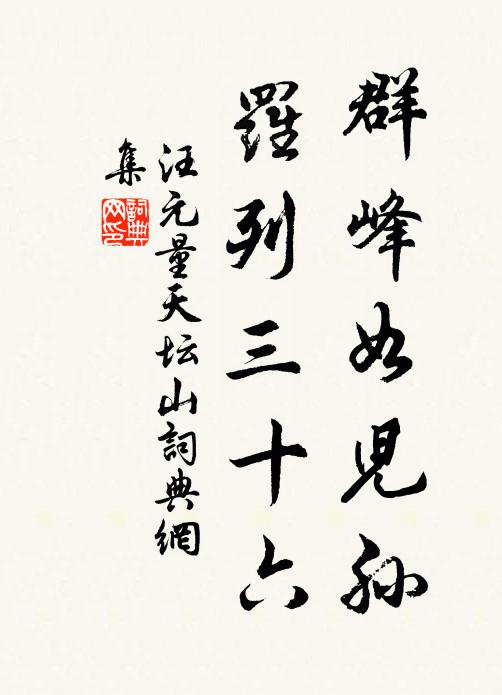 群峰如児孫
羅列三十六
汪元量天坛山詞典網
集
詞典
网印